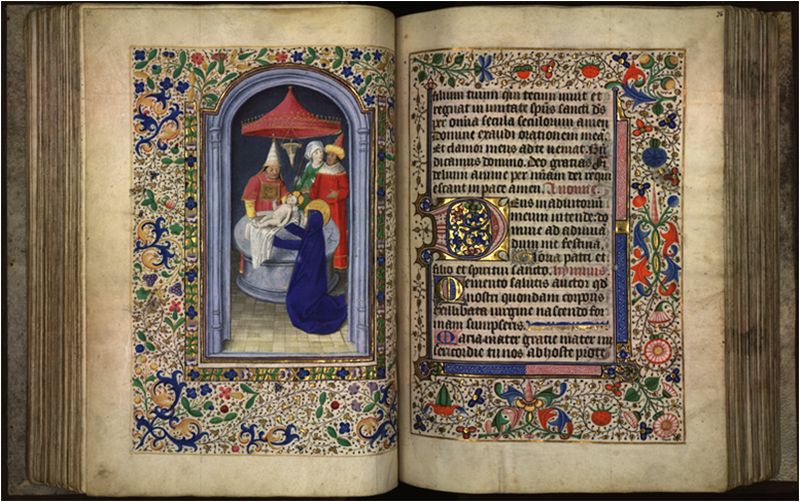 filium tuum qui tecum uiuit et
regnat in unitate spūs sancti d̄s
per om̄ia secula seculorum amen
Domine exaudi orationem meā
Et clamor meus ad te ueniat. Bn̄
dicamus domino. Deo gratias. Fi
delium anime per miām dei requi
escant in pace amen. Ad none.
Deus in adiutoriū
meum intende: do
mine ad adiuuā
dum me festina.
Gloria patri et
filio et spiritui sancto. hymnus
Memento salutis auctor qd
nostri quondam corporis
ex illibata uirgine nascendo for
mam sumpseris
Maria mater gratie mater mi
sericordie tu nos ab hoste prote